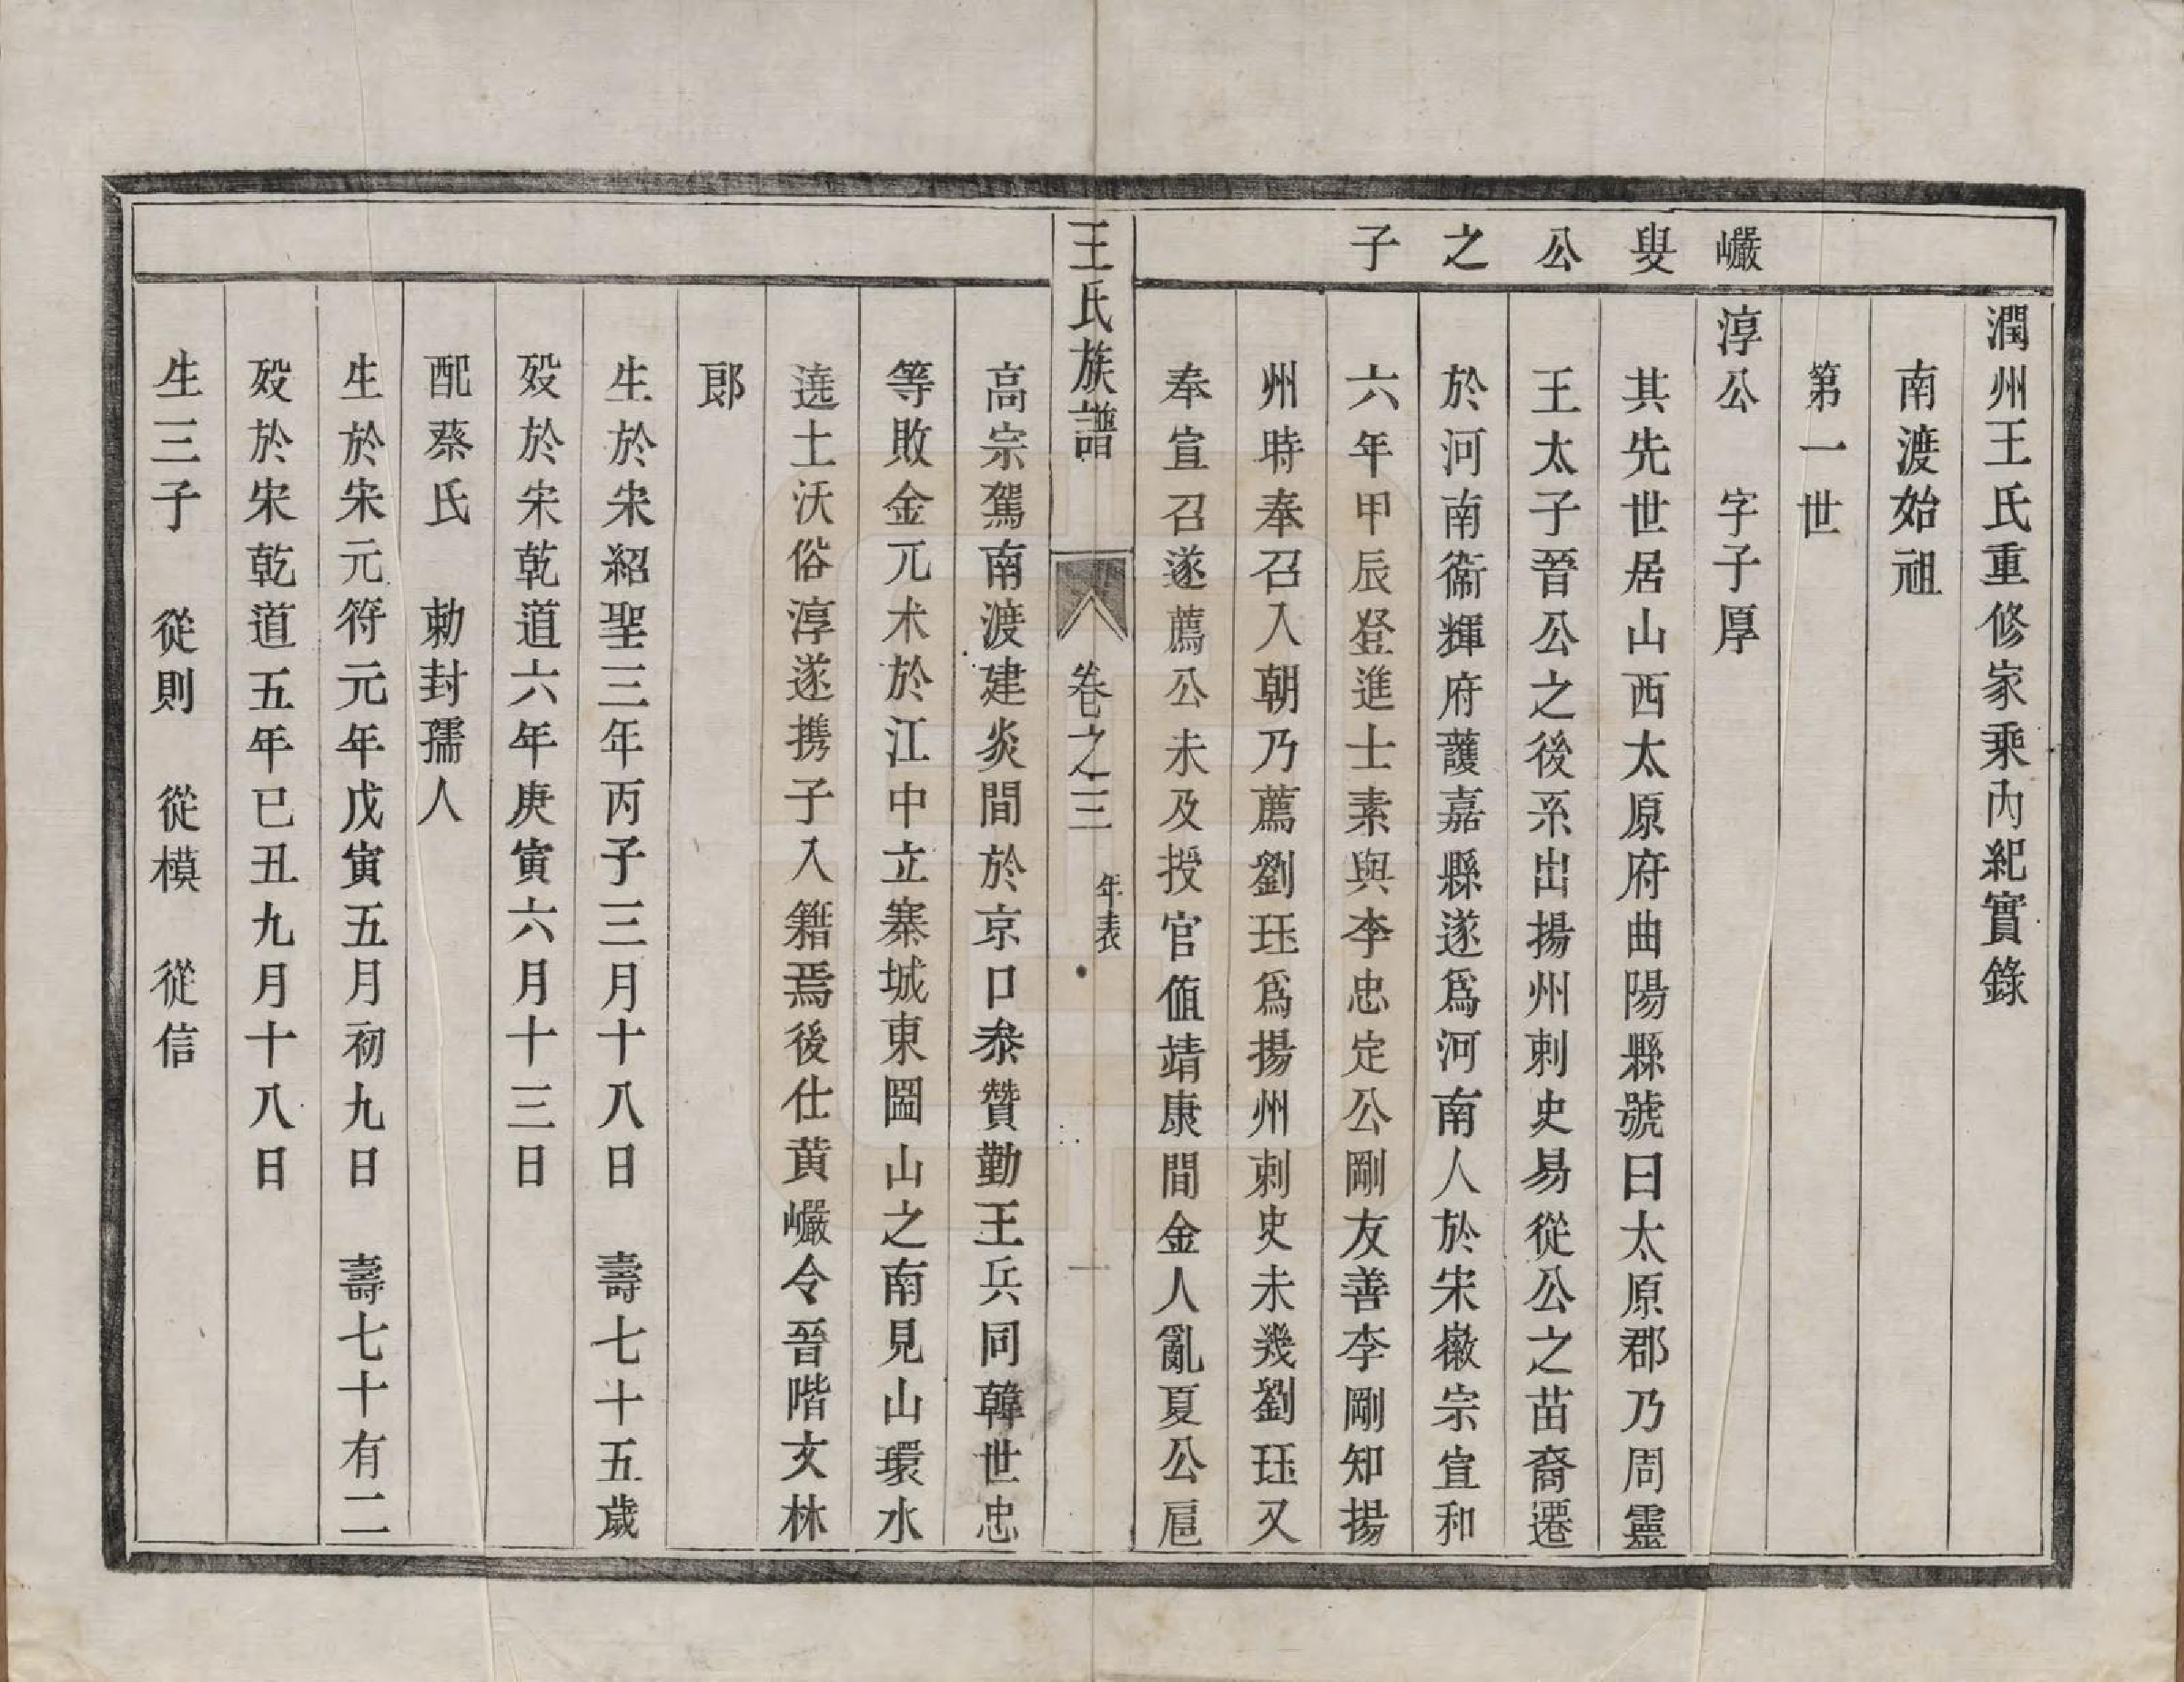 潤州王氏重修家乘內紀實錄
南渡始祖
第一世
巖叟公之子
淳公　字子厚
其先世居山西太原府曲陽縣號曰太原郡乃周靈
王太子晉公之後系出揚州刺史易從公之苗裔遷
於河南衞輝府護嘉縣遂爲河南人於宋徽宗宣和
六年甲辰登進士素與李忠定公剛友善李剛知揚
州時奉召入朝乃薦劉珏爲揚州刺史未幾劉珏又
奉宣召遂薦公未及授官値靖康間金人亂夏公扈
王氏族譜　卷之三　年表　一
高宗駕南渡建炎間於京口叅贊勤王兵同韓世忠
等敗金兀术於江中立寨城東圌山之南見山環水
遶土沃俗淳遂携子入籍焉後仕黄巖令晉階文林
郎
生於宋紹聖三年丙子三月十八日　壽七十五歲
歿於宋乾道六年庚寅六月十三日
配蔡氏　勅封孺人
生於宋元符元年戊寅五月初九日　壽七十有二
歿於宋乾道五年已丑九月十八日
生三子　從則　從模　從信